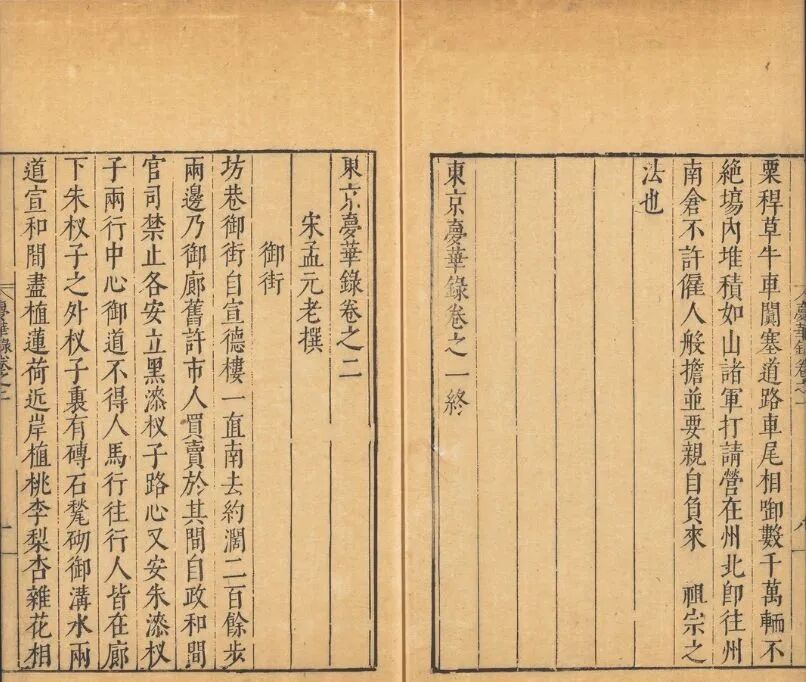 粟稈草牛車闐塞道路車尾相啣數千萬輛不
絶場內堆積如山諸軍打請營在州北卽往州
南倉不許僱人般擔並要親自負來　祖宗之
法也
東京夢華錄卷之一終
東京夢華錄卷之二
宋孟元老撰
御街
坊巷御街自宣德樓一直南去約濶二百餘步
兩邊乃御廊舊許市人買賣於其間自政和間
官司禁止各安立黑漆杈子路心又安朱漆杈
子兩行中心御道不得人馬行往行人皆在廊
下朱杈子之外杈子裏有磚石甃砌御溝水兩
道宣和間盡植蓮荷近岸植桃李梨杏雜花相
夢華錄卷之二
一